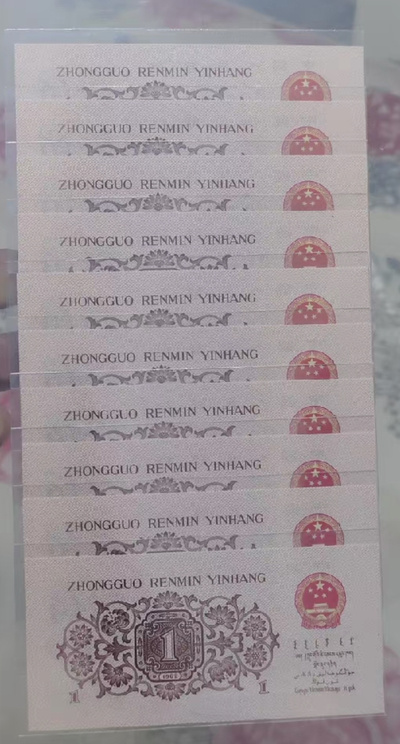 ZHONGGUO RENMIN YINHANG
ZHONGGUO RENMIN YINHANG
ZHONGGUO RENMIN YINHANG
ZHONGGUO RENMIN YINHANG
ZHONGGUO RENMIN YINHANG
ZHONGGUO RENMIN YINHANG
ZHONGGUO RENMIN YINHANG
ZHONGGUO RENMIN YINHANG
ZHONGGUO RENMIN YINHANG
ZHONGGUO RENMIN YINHANG
1
1